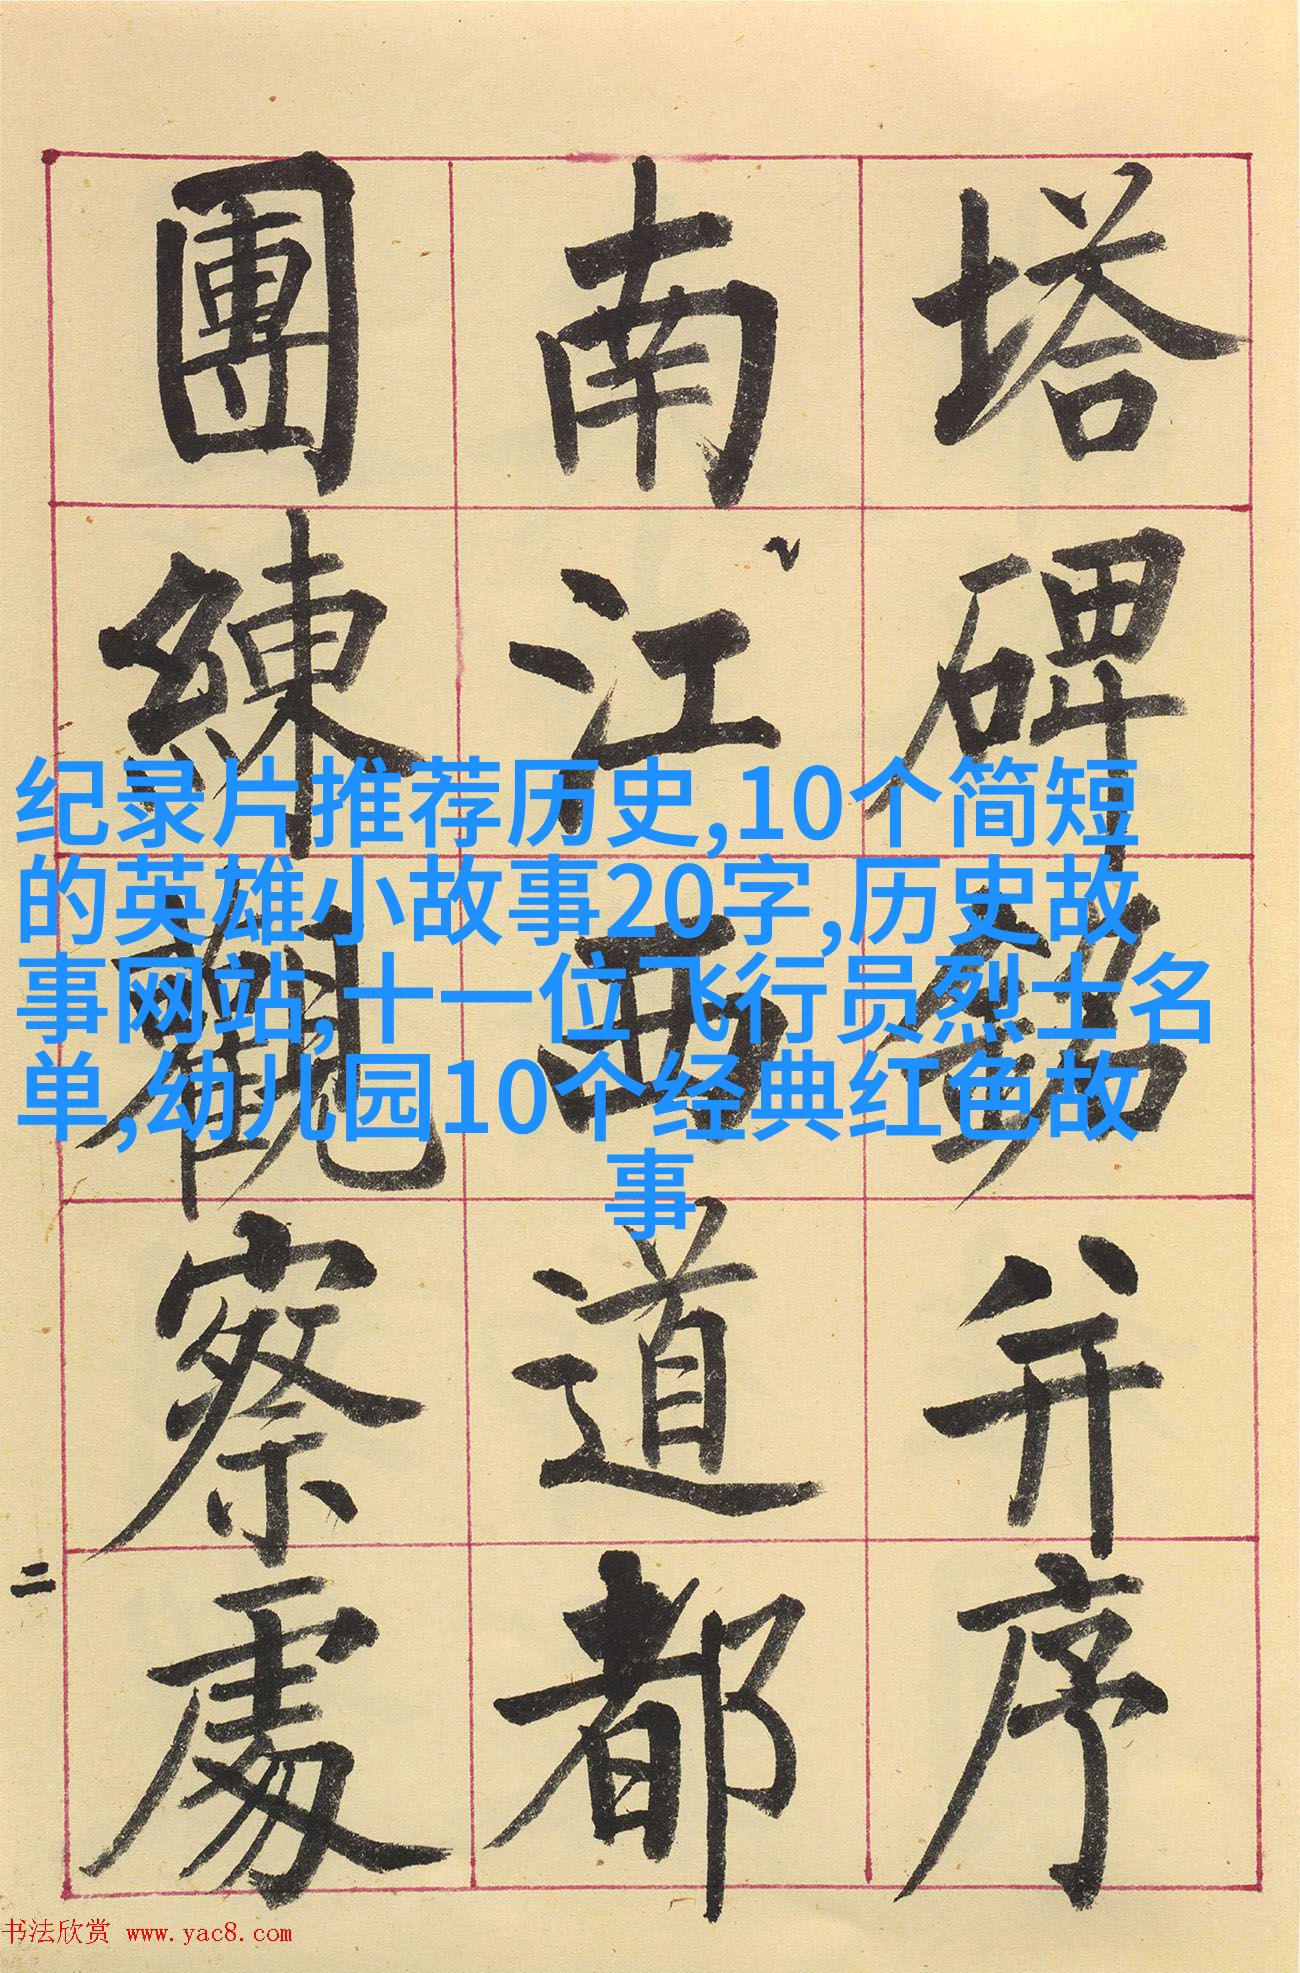 塔碑銘并序
南江西道都
團練觀察處
二
纪录片推荐历史,10个简短
的英雄小故事20字,历史故
事网站,十一位飞行员烈士名
单,幼儿园10个经典红色故
事
书法欣赏 www.yac8.com